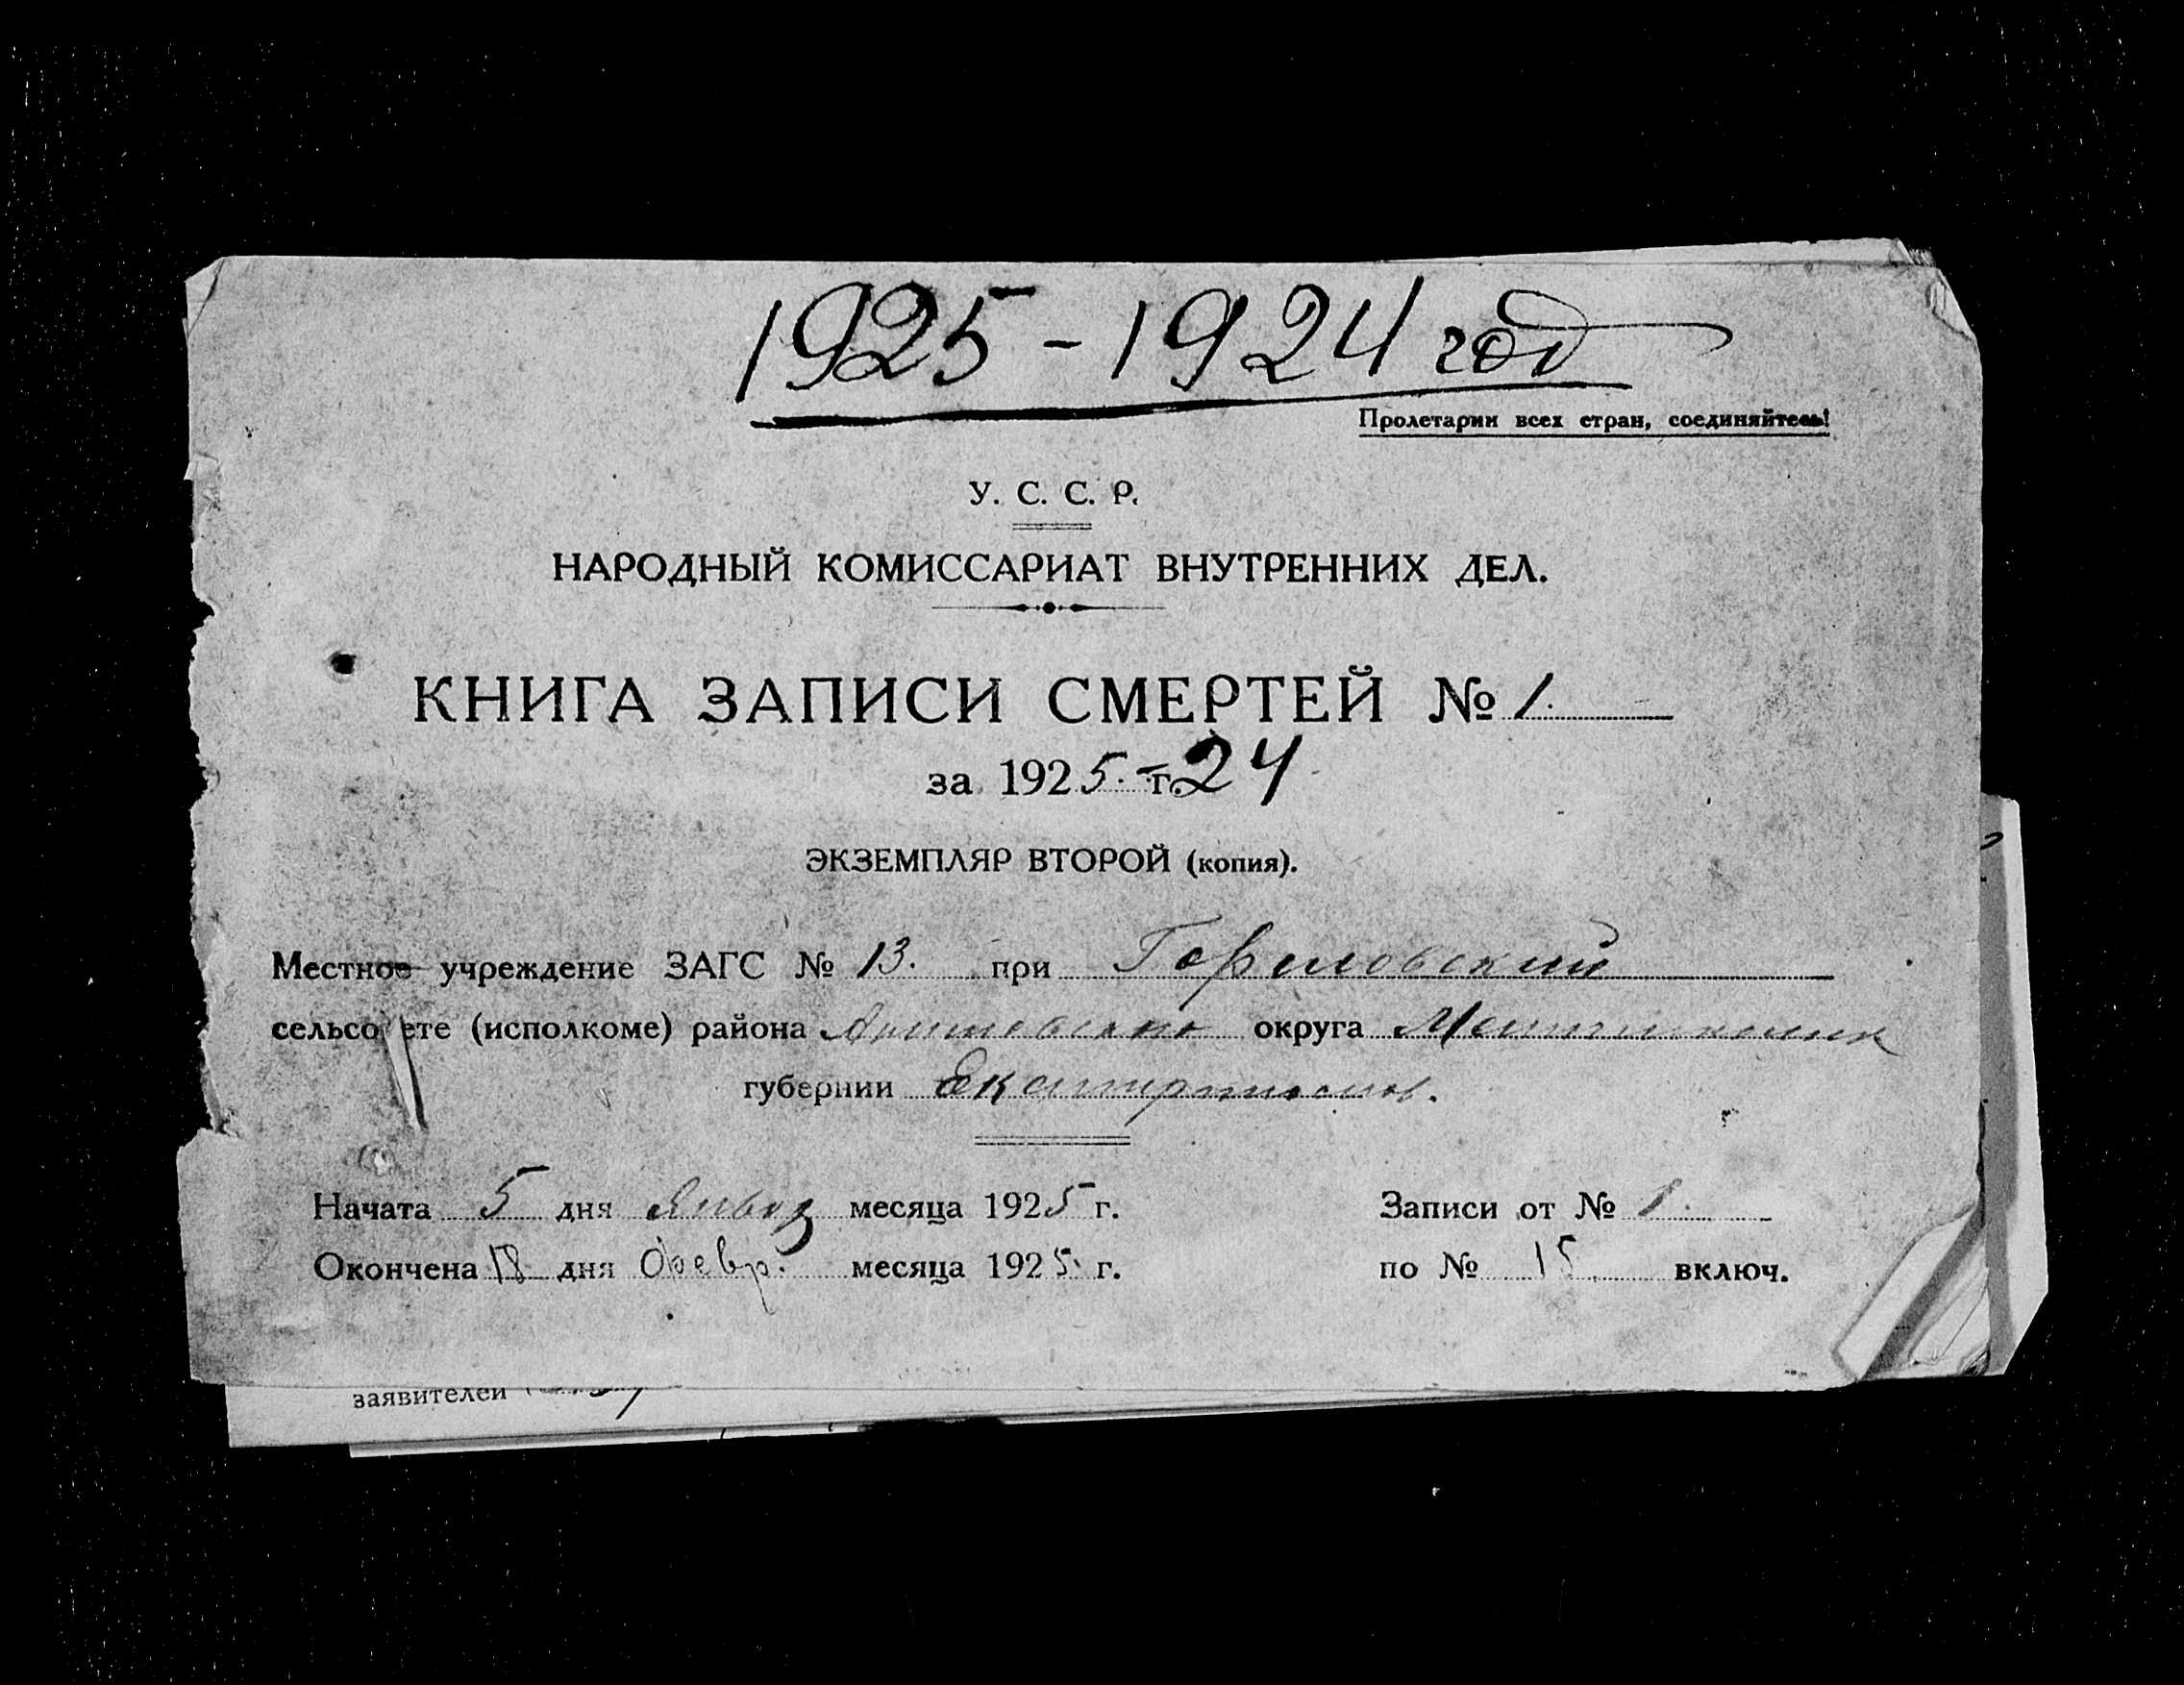 1925-1924 год
Пролетарии всех стран, соединяйтесь!
У. С. С. Р.
НАРОДНЫЙ КОМИССАРИАТ ВНУТРЕННИХ ДЕЛ.
КНИГА ЗАПИСИ СМЕРТЕЙ № 1.
за 1925. - г. 24
ЭКЗЕМПЛЯР ВТОРОЙ (копия).
Местное учреждение ЗАГС № 13. при
сельсовете (исполкоме) района округа
губернии
Начата 5 дня месяца 1925 г.
Записи от № 1.
Окончена 18 дня Февр. месяца 1925. г.
по № 15 включ.
заявителей